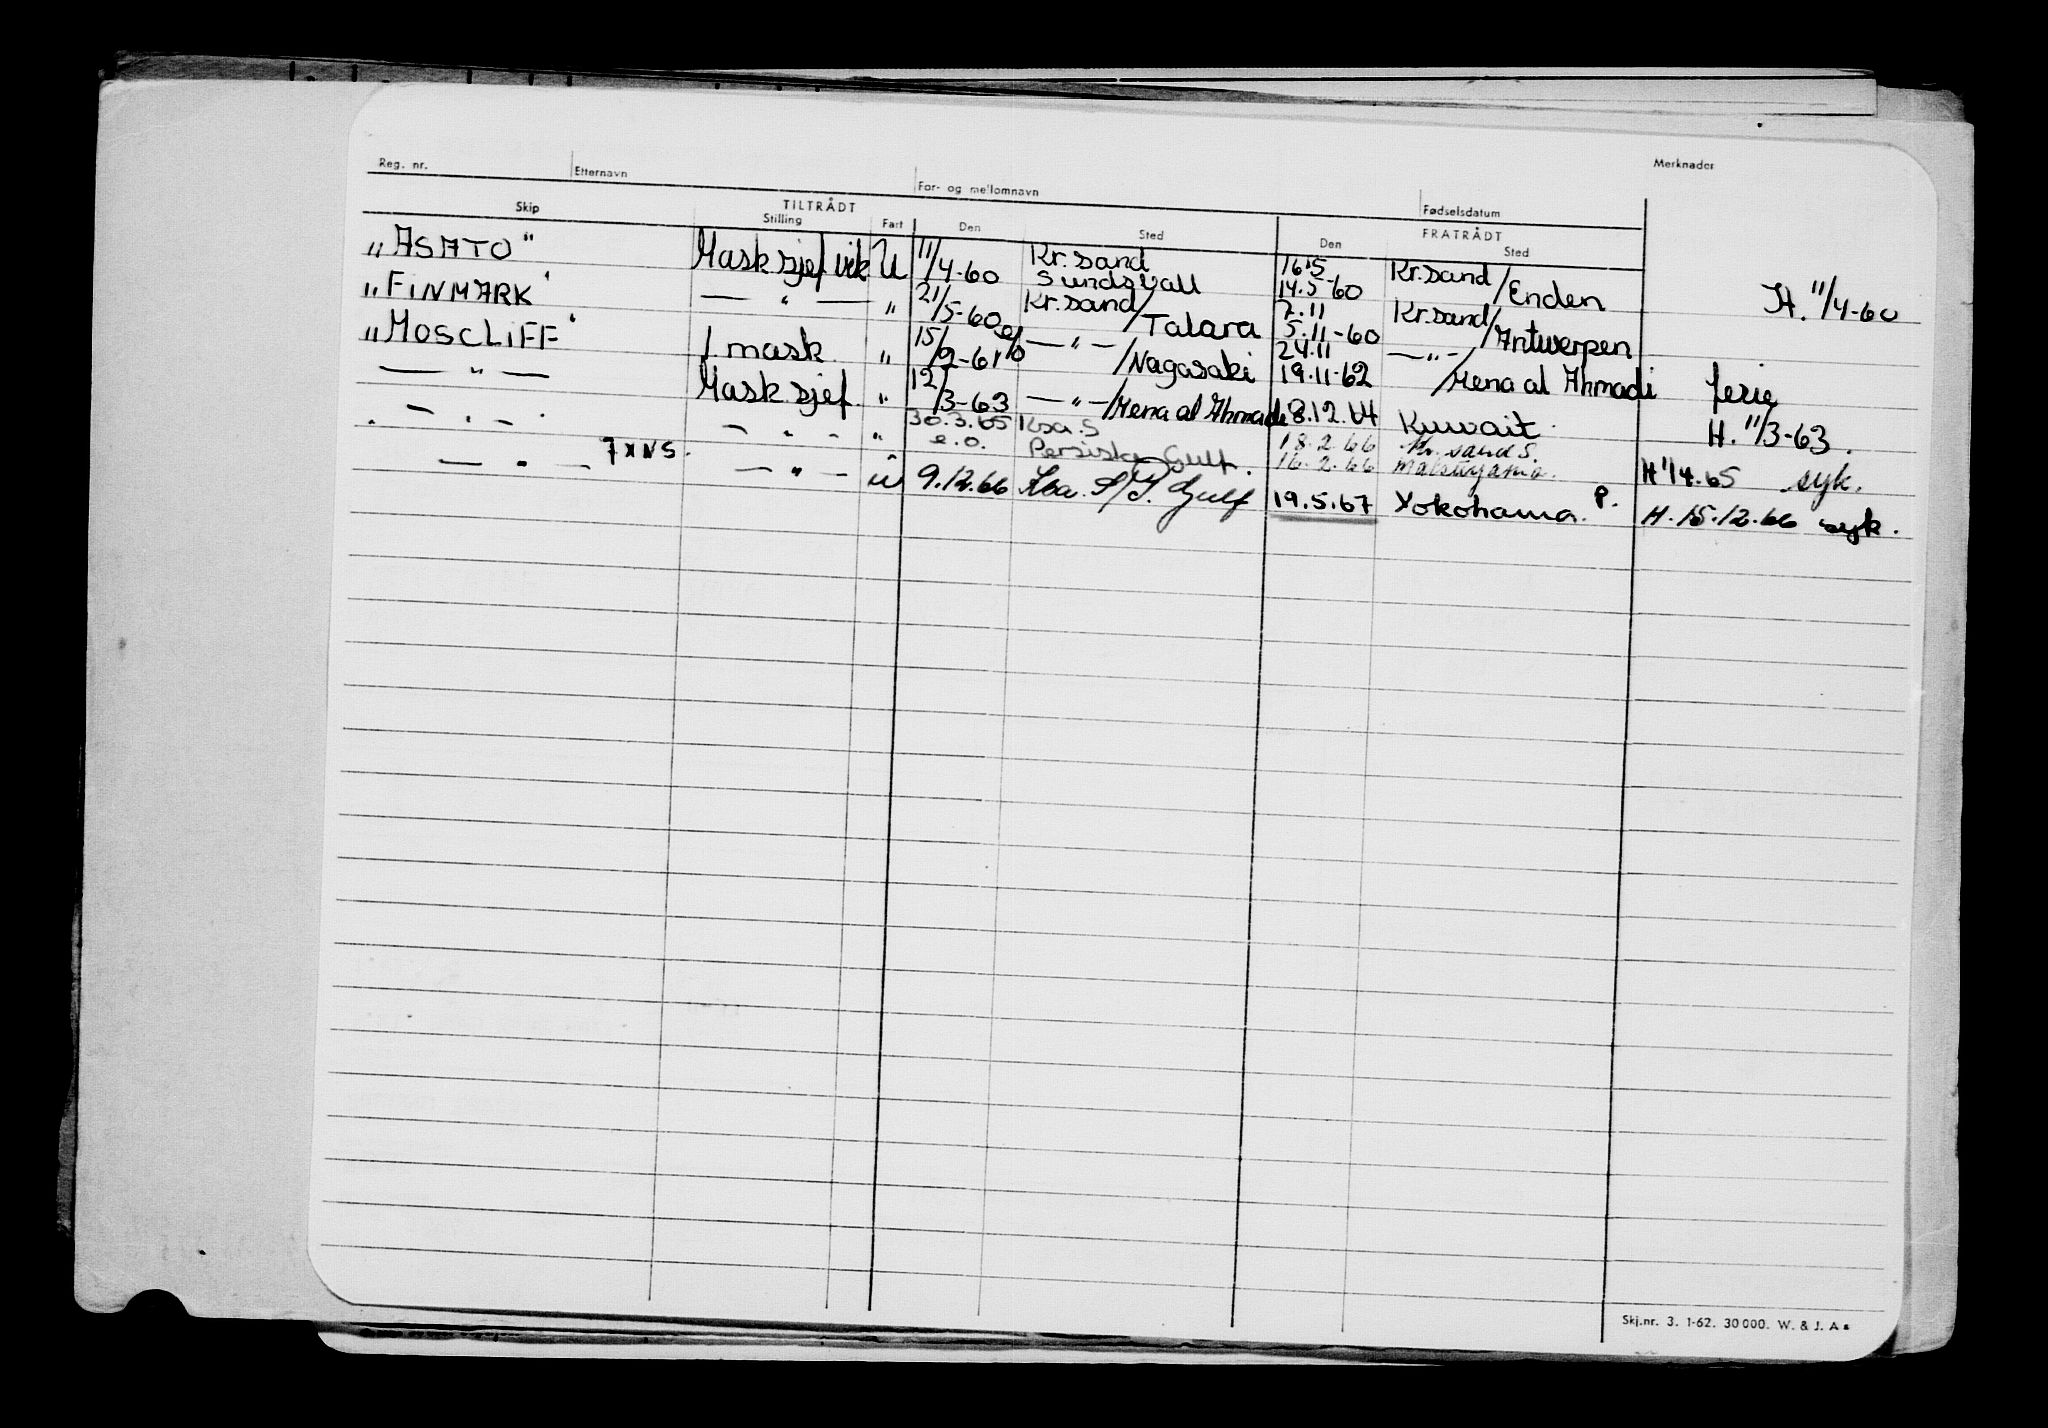 Reg. nr. Etternavn For- og mellomnavn Fødselsdatum Merknader
TILTRÅDT FRATRÅDT
Skip Stilling Fart Den Sted Den Sted
„ASATO" Mask sjef vik U 11/4-60 Kr.sand Sundsvall 16.5 14.5-60 Kr.sand/Enden H. 11/4-60
„FINMARK" — " — " 21/5-60 Kr.sand/Talara 2.11 5.11-60 Kr.sand/Antwerpen
„MOSCLIFF" 1. mask " 15/9-61 — " —/Nagasaki 24.11 19.11-62 — " —/Mena al Ahmadi ferie
— " — Mask sjef " 12/3-63 — " —/Mena al Ahmadi 18.12.64 Kuwait H. 11/3-63.
— " — — " — " 30.3.65 e.o. Krsa. S Persiske Gulf. 18.2.66 16.2.66 Kr. sand S. Matsuyama. H 1/4.65 syk.
— " — 7XNS. — " — U 9.12.66 Kra. S/P. Gulf 19.5.67 Yokohama. P. H. 15.12.66 syk.
Skj.nr. 3. 1-62. 30 000. W. & J. A s